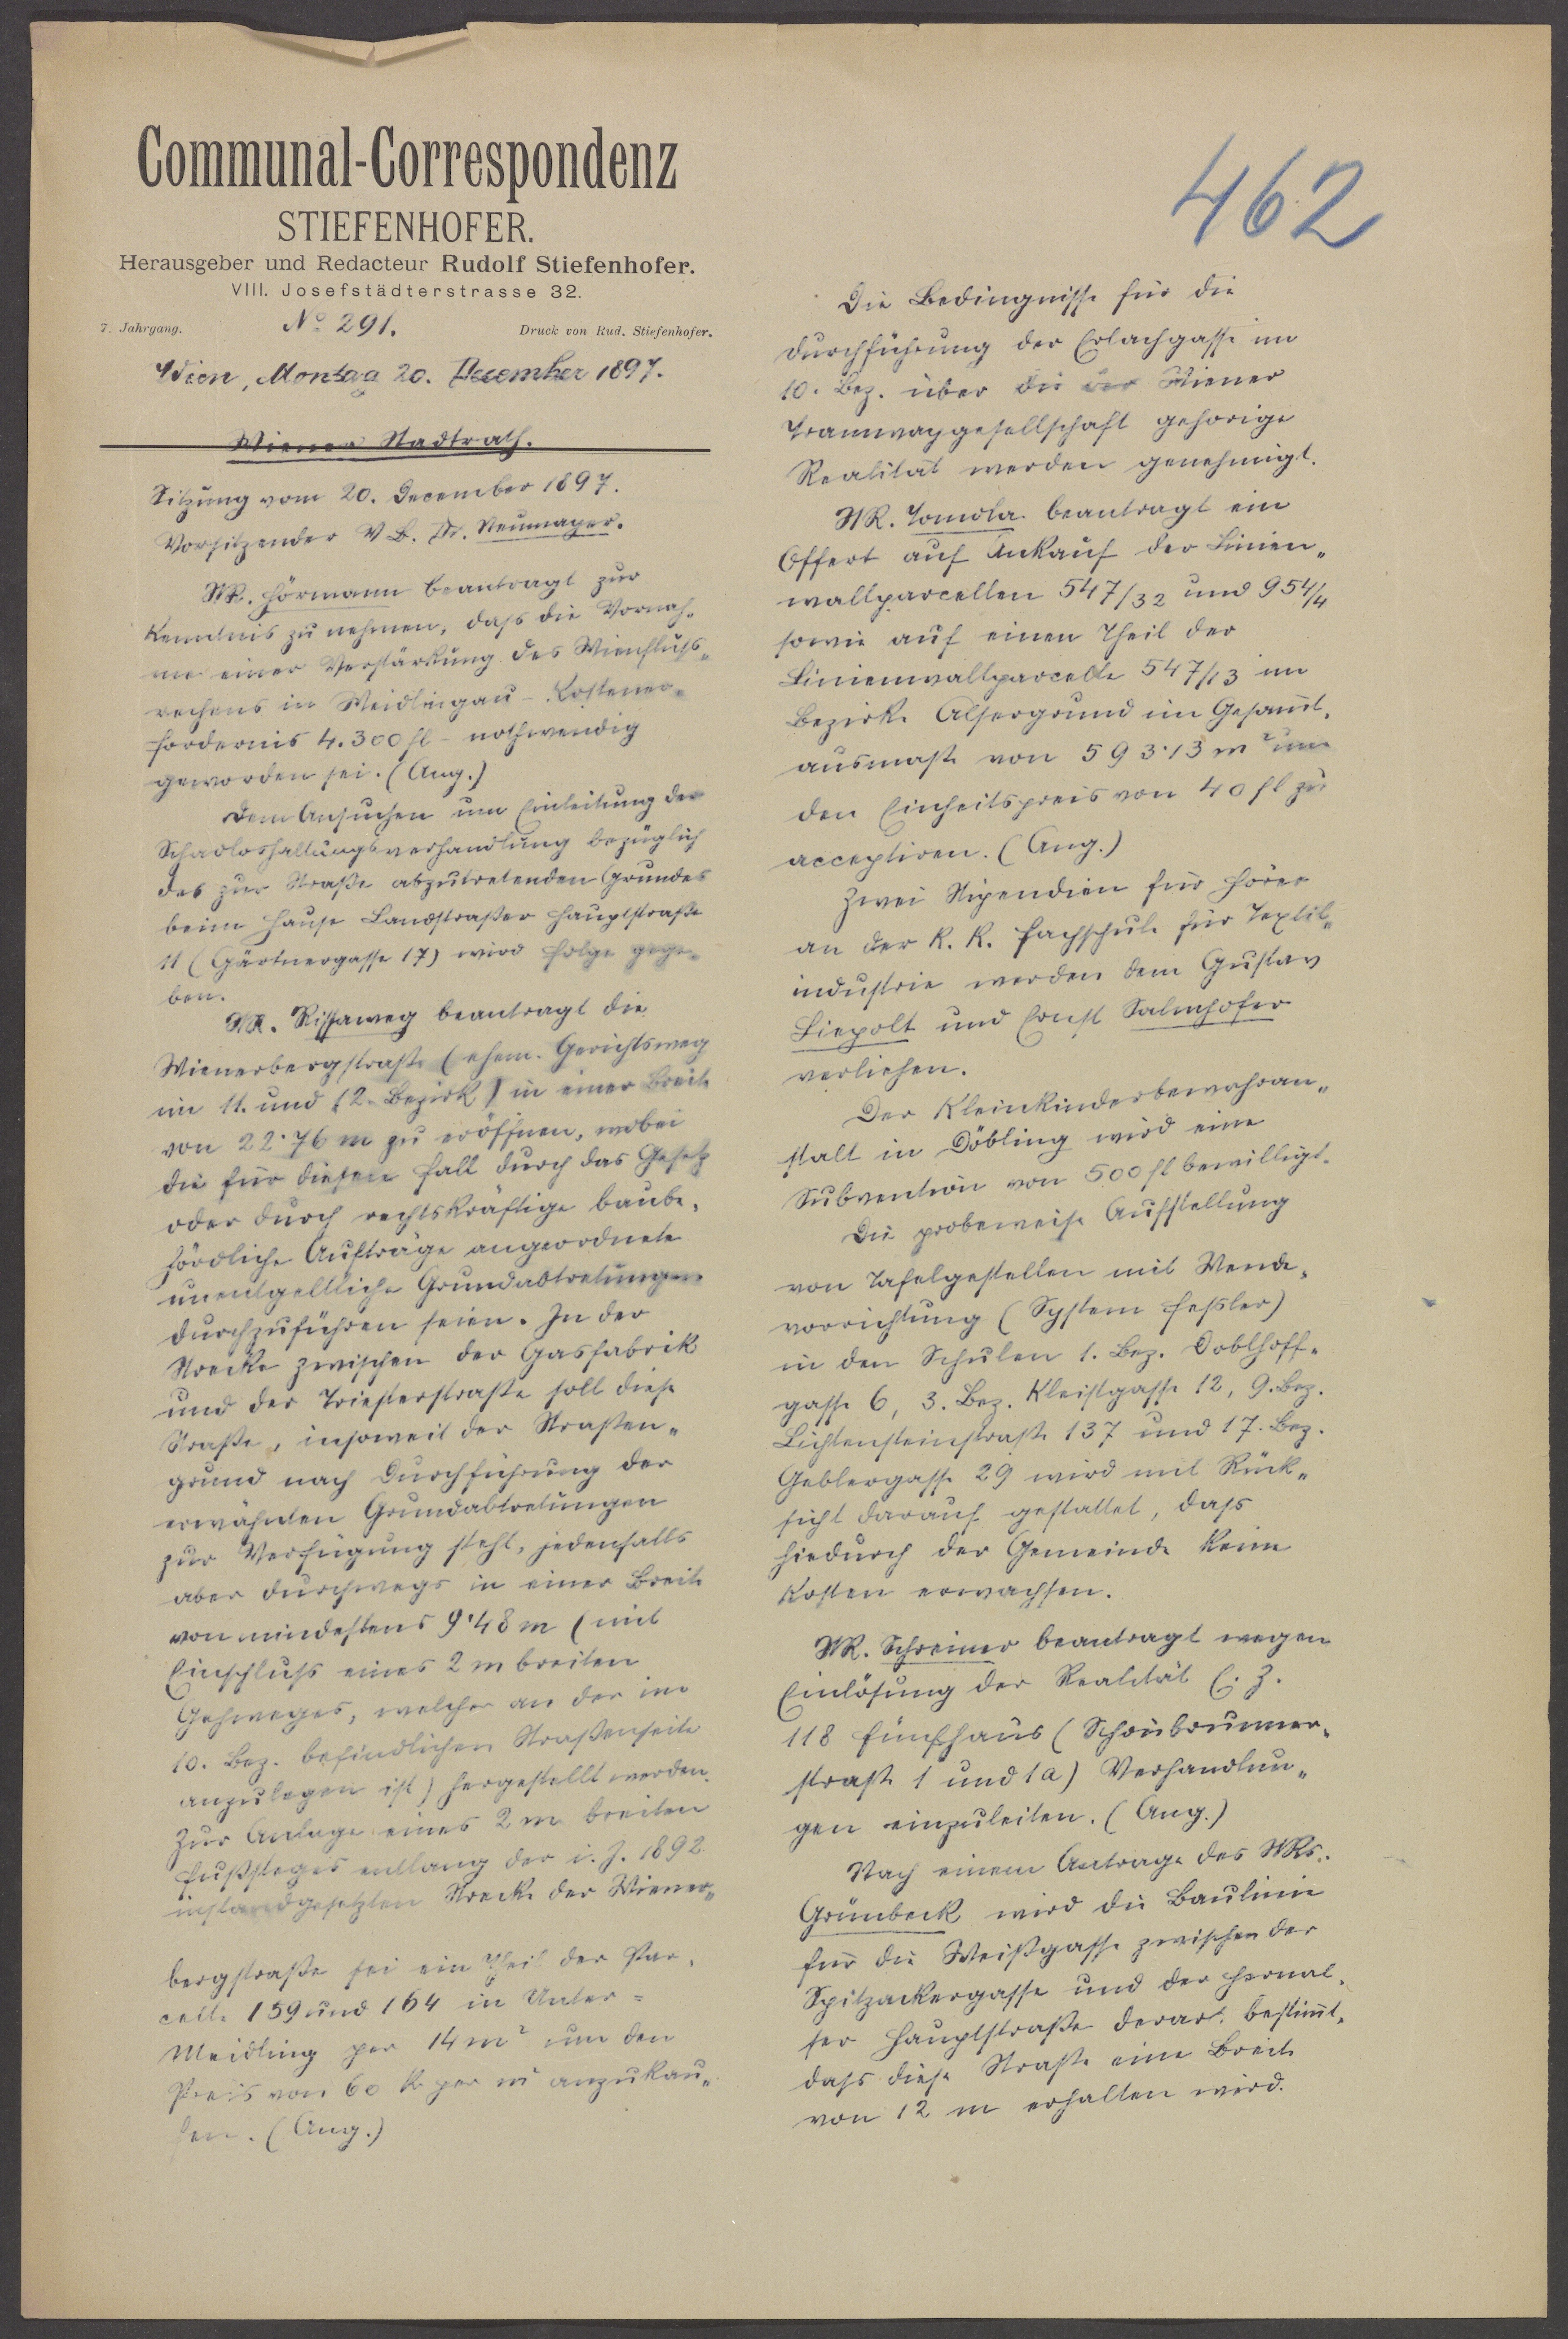 Communal-Correspondenz
STIEFENHOFER.
Herausgeber und Redacteur Rudolf Stiefenhofer.
VIII. Josefstädterstrasse 32.
7. Jahrgang. No 291. Druck von Rud. Stiefenhofer.
Wien, Montag 20. December 1897.
Wiener Stadtrath.
Sitzung vom 20. December 1897.
Vorsitzender V B. Dr. Neumayer.
StR. Hörmann beantragt zur
Kenntnis zu nehmen, dass die Vornah„
me einer Verstärkung des Wienfluss„
rechens in Weidlingau – Kostener„
fordernis 4.300 fl – nothwendig
geworden sei. (Ang.)
Dem Ansuchen um Einleitung der
Schadloshaltungsverhandlung bezüglich
des zur Straße abzutretenden Grundes
beim Hause Landstraßer Hauptstraße
11 (Gärtnergasse 17) wird Folge gege„
ben.
StR. Rissaweg beantragt die
Wienerbergstraße (ehem. Gerichtsweg
im 11. und 12. Bezirk) in einer Breite
von 22·76 m zu eröffnen, wobei
die für diesen Fall durch das Gesetz
oder durch rechtskräftige baube„
hördliche Aufträge angeordnete
unentgeltliche Grundabtretungen
durchzuführen seien. In der
Strecke zwischen der Gasfabrik
und der Triesterstraße soll diese
Straße, insoweit der Straßen„
grund nach Durchführung der
erwähnten Grundabtretungen
zur Verfügung steht, jedenfalls
aber durchwegs in einer Breite
von mindestens 9·48 m (mit
Einschluss eines 2 m breiten
Gehweges, welcher an der im
10. Bez. befindlichen Straßenseite
anzulegen ist) hergestellt werden.
Zur Anlage eines 2 m breiten
Fußsteges entlang der i. J. 1892
instandgesetzten Strecke der Wiener„
bergstraße sei ein Theil der Par„
celle 159 und 164 in Unter=
Meidling per 14 m² um den
Preis von 60 kr per m² anzukau„
fen. (Ang.)
462
Die Bedingnisse für die
Durchführung der Erlachgasse im
10. Bez. über die der Wiener
Tramwaygesellschaft gehörige
Realität werden genehmigt.
StR. Tomola beantragt ein
Offert auf Ankauf der Linien„
wallparcellen 547/32 und 954/4
sowie auf einen Theil der
Linienwallparcelle 547/13 im
Bezirke Alsergrund im Gesam̅t„
ausmaße von 593·13 m² um
den Einheitspreis von 40 fl zu
acceptiren. (Ang.)
Zwei Stipendien für Hörer
an der k. k. Fachschule für Textil„
industrie werden dem Gustav
Liepolt und Ernst Salmhofer
verliehen.
Der Kleinkinderbewahran„
stalt in Döbling wird eine
Subvention von 500 fl bewilligt.
Die probeweise Aufstellung
von Tafelgestellen mit Wende„
vorrichtung (System Fessler)
in den Schulen 1. Bez. Doblhoff„
gasse 6, 3. Bez. Kleistgasse 12, 9. Bez.
Lichtensteinstraße 137 und 17. Bez.
Geblergasse 29 wird mit Rück„
sicht darauf gestattet, dass
hiedurch der Gemeinde keine
Kosten erwachsen.
StR. Schreiner beantragt wegen
Einlösung der Realität E. Z.
118 Fünfhaus (Schönbrunner„
straße 1 und 1a) Verhandlun„
gen einzuleiten. (Ang.)
Nach einem Antrage des StRs.
Grünbeck wird die Baulinie
für die Weißgasse zwischen der
Spitzackergasse und der Hernal„
ser Hauptstraße derart bestim̅t,
dass diese Straße eine Breite
von 12 m erhalten wird.